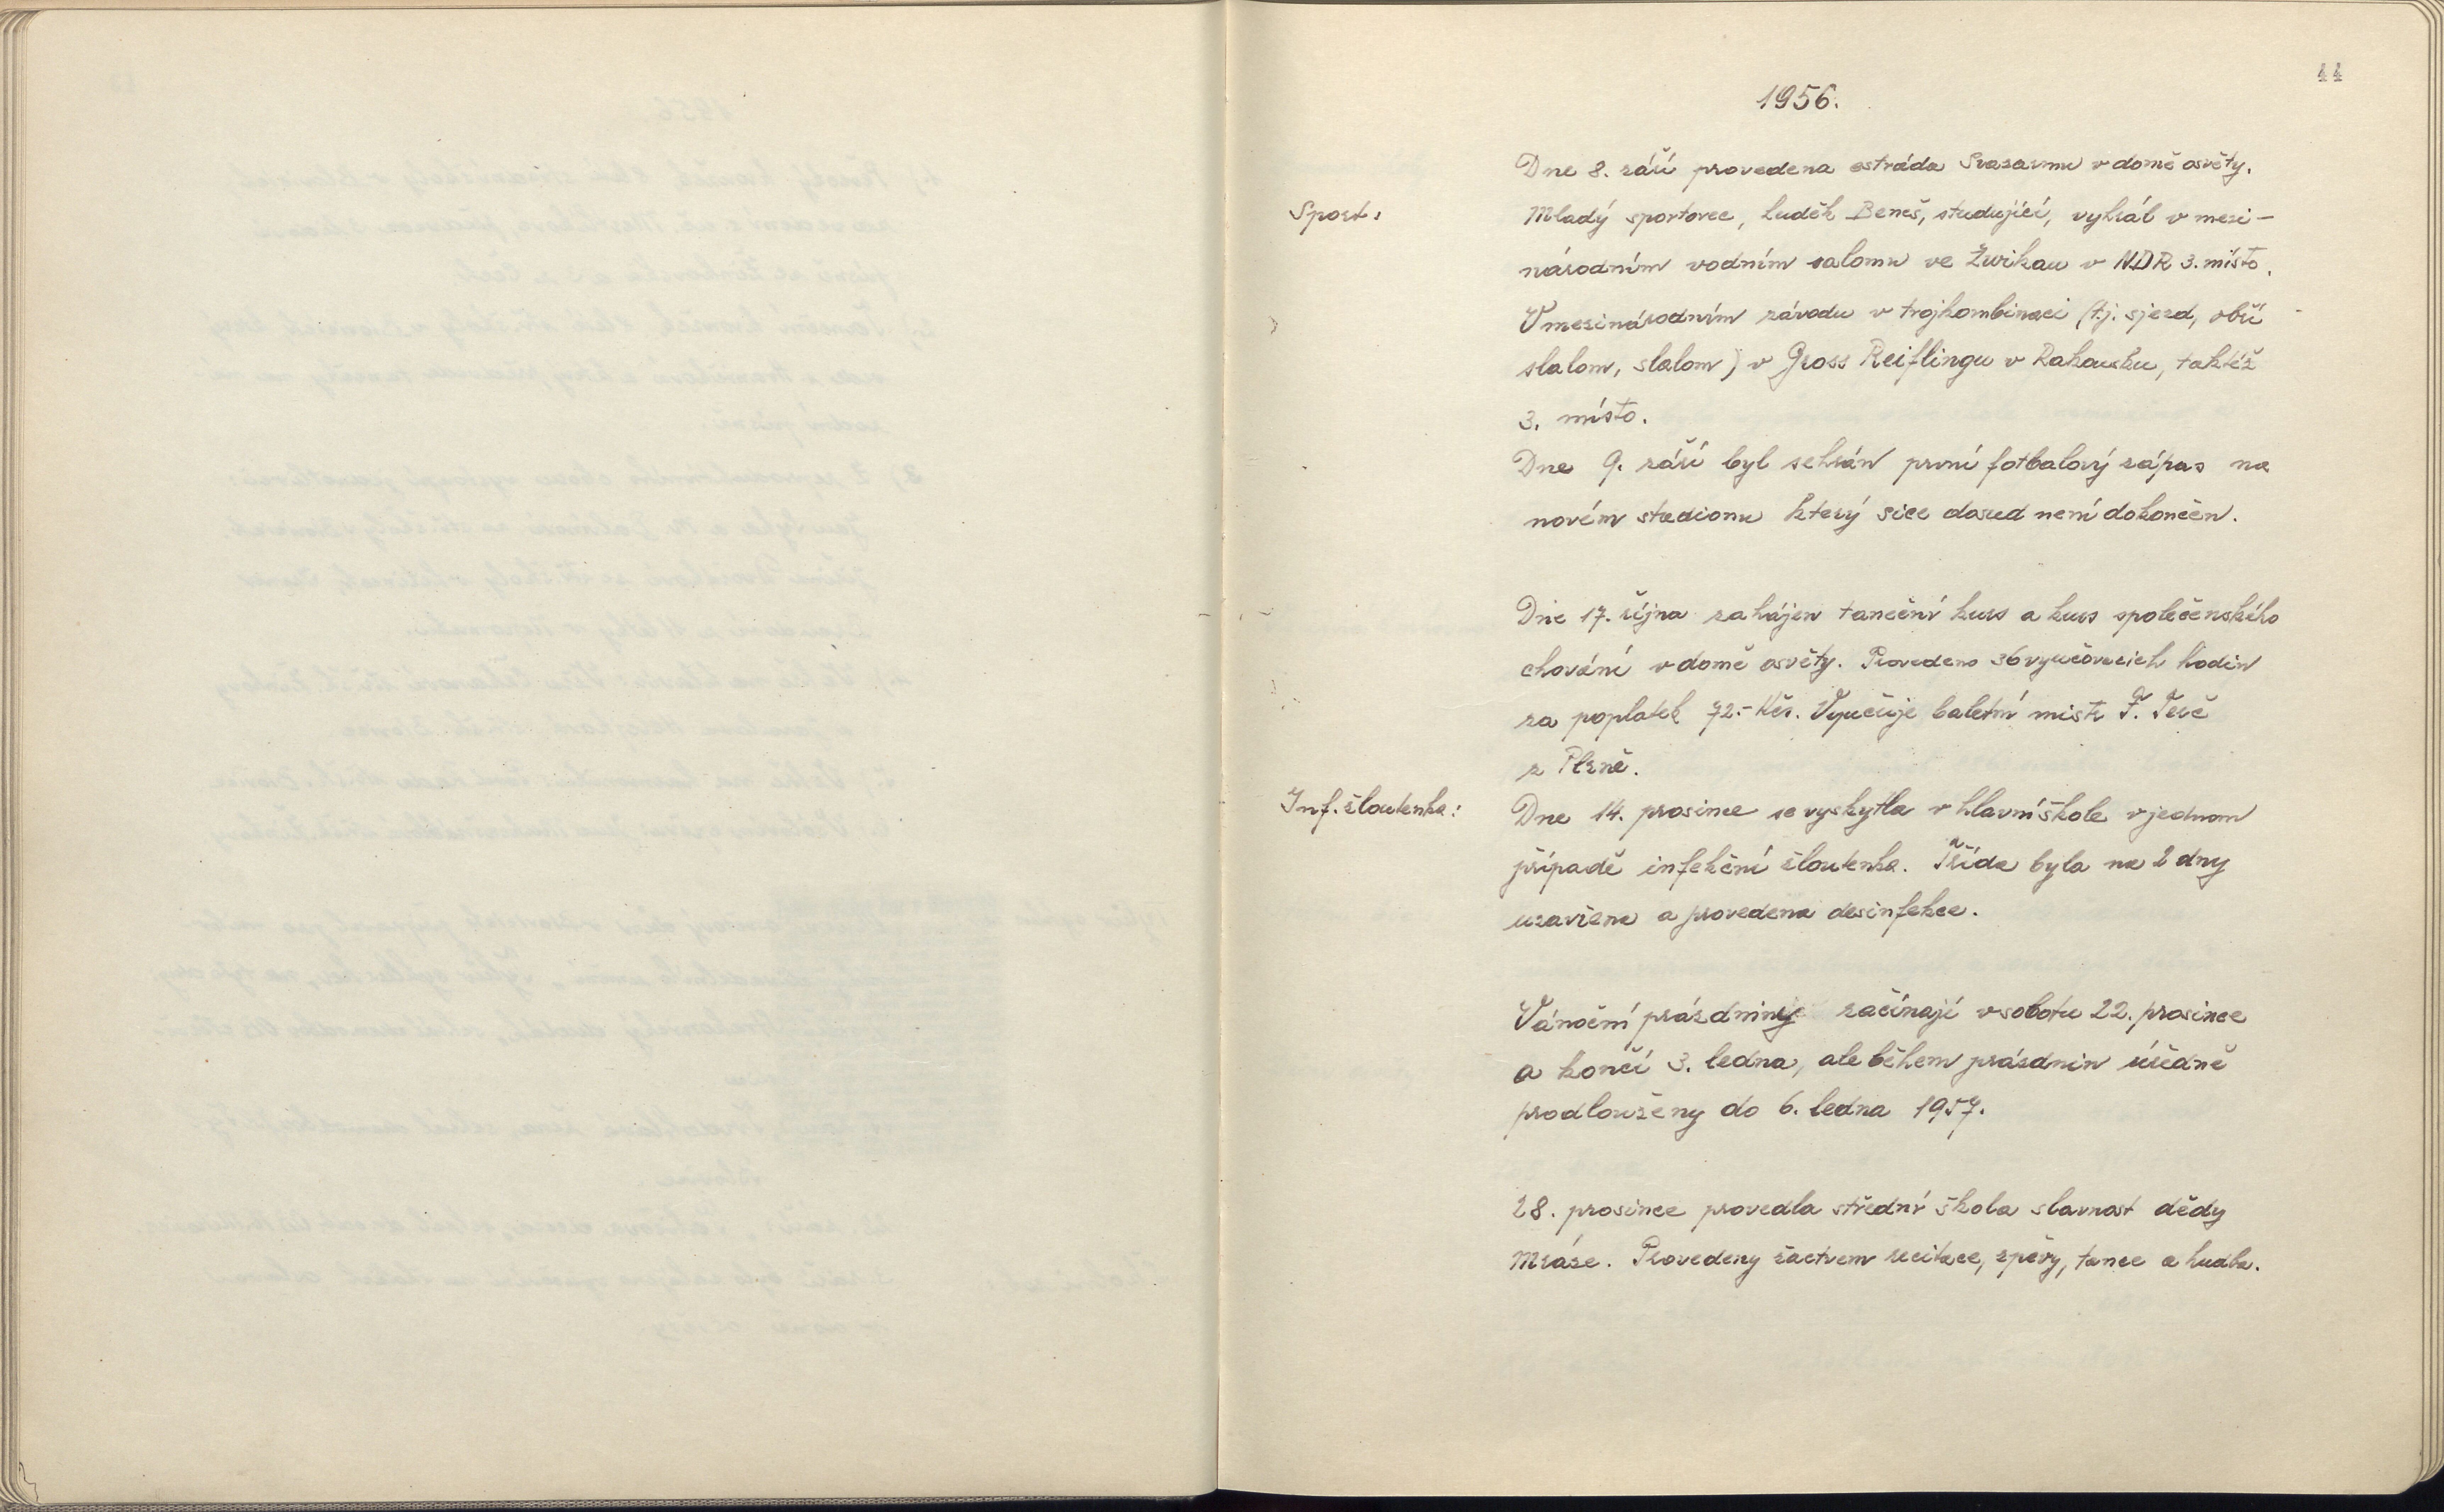 44
1956.
Dne 8. září provedena estráda Svazarmu v domě osvěty.
Sport:
Mladý sportovec, Luděk Beneš, studující, vyhrál v mezi-
národním vodním salomu ve Žwikau v NDR 3. místo.
V mezinárodním závodu v trojkombinaci (t.j. sjezd, obří
slalom, slalom) v Gross Reiflingu v Rakousku, taktéž
3. místo.
Dne 9. září byl sehrán první fotbalový zápas na
novém stadionu který sice dosud není dokončen.
Dne 17. října zahájen taneční kurs a kurs společenského
chování v domě osvěty. Provedeno 36 vyučovacích hodin
za poplatek 72.- Kčs. Vyučuje baletní mistr F.
z Plzně.
Inf. žloutenka:
Dne 14. prosince se vyskytla v hlavní škole v jednom
případě infekční žloutenka. Třída byla na 2 dny
uzavřena a provedena desinfekce.
Vánoční prázdniny začínají v sobotu 22. prosince
a končí 3. ledna, ale během prázdnin úředně
prodlouženy do 6. ledna 1957.
28. prosince provedla střední škola slavnost dědy
Mráze. Provedeny žactvem recitace, zpěvy, tance a hudba.